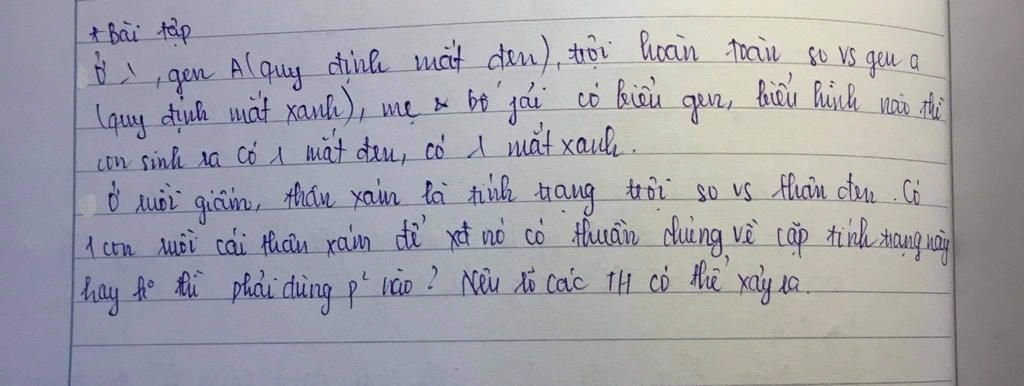 * Bài tập
Ở λ, gen A (quy định mắt đen), trội hoàn toàn so vs gen a
(quy định mắt xanh), mẹ & bố fải có kiểu gen, kiểu hình nào thì
con sinh ra có λ mắt đen, có λ mắt xanh.
Ở ruồi giấm, thân xám là tính trạng trội so vs thân đen. Có
1 con ruồi cái thân xám để xđ nó có thuần chủng về cặp tính trạng này
hay ko thì phải dùng p² nào? Nêu rõ các TH có thể xảy ra.